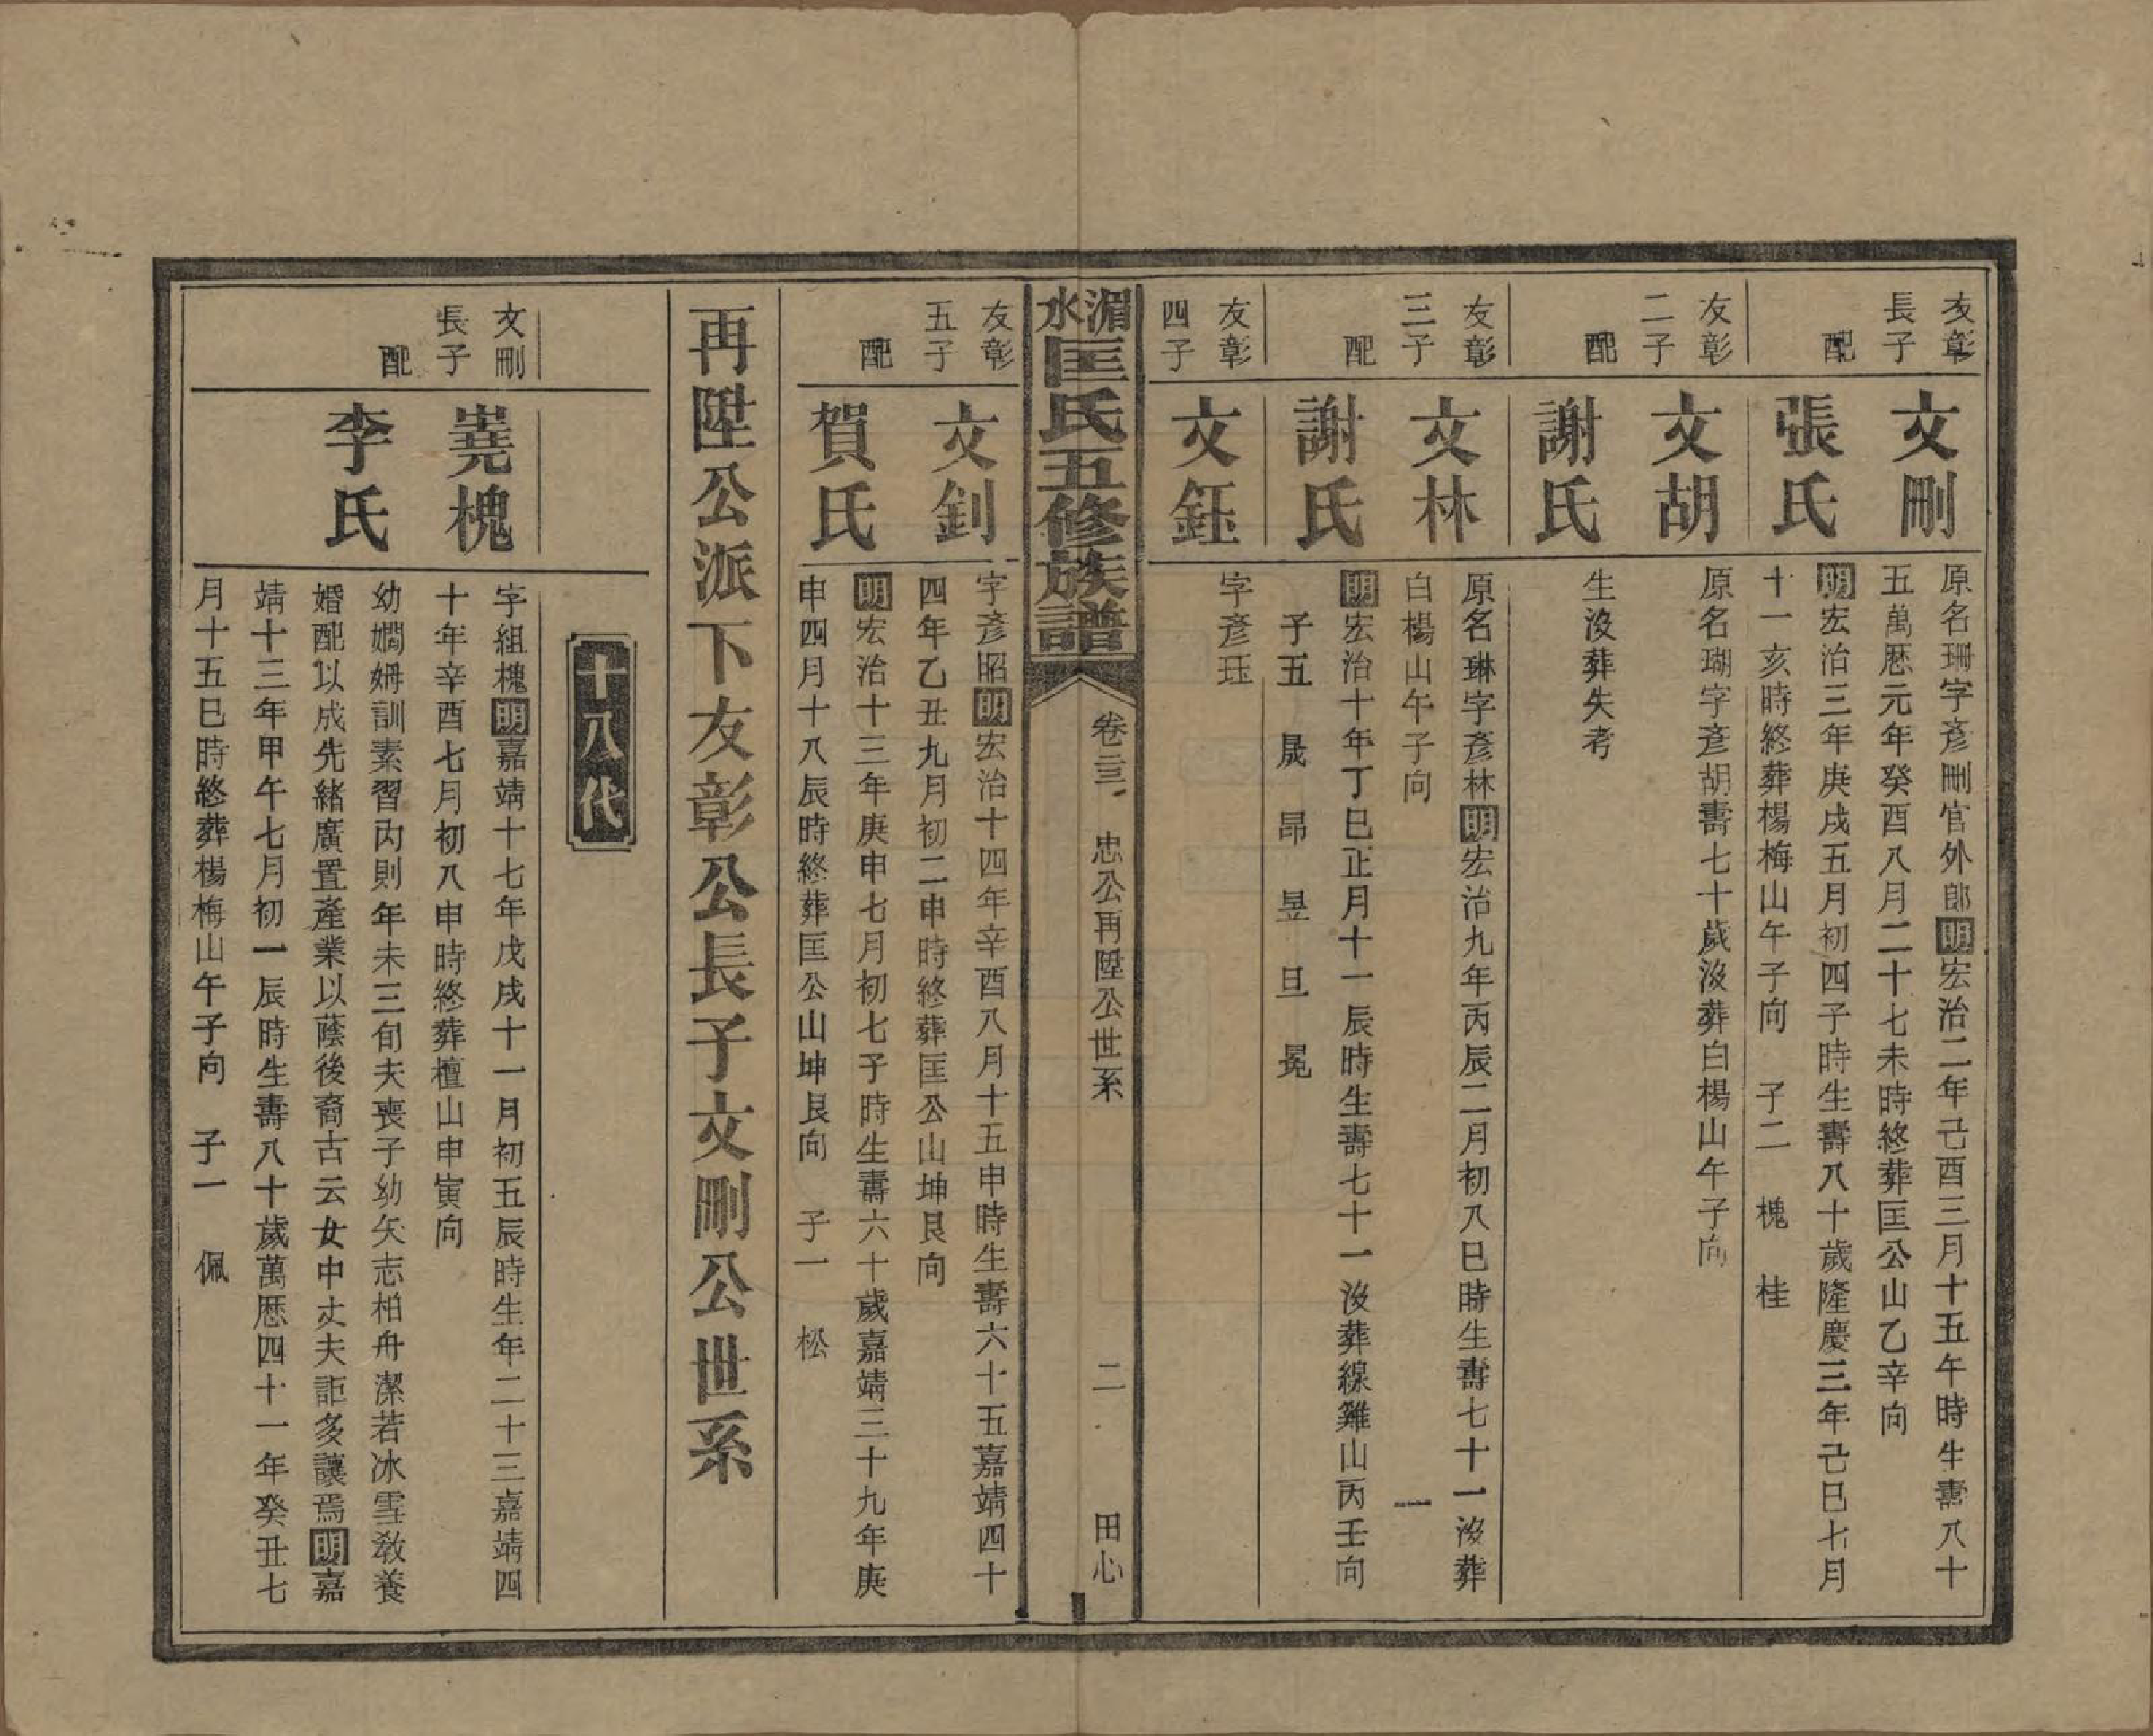 友彰
長子
文刪
原名珊字彥刪官外郎明宏治二年己酉三月十五午時生壽八十
五萬歷元年癸酉八月二十七未時終葬匡公山乙辛向
配
張氏
明宏治三年庚戌五月初四子時生壽八十歲隆慶三年己巳七月
十一亥時終葬楊梅山午子向 子二 槐 桂
友彰
二子
文胡
原名瑚字彥胡壽七十歲沒葬白楊山午子向
配
謝氏
生沒葬失考
友彰
三子
文林
原名琳字彥林明宏治九年丙辰二月初八巳時生壽七十一沒葬
白楊山午子向
配
謝氏
明宏治十年丁巳正月十一辰時生壽七十一沒葬線雞山丙壬向
子五 晟 昂 昱 旦 冕
友彰
四子
文鈺
字彥珏
湄水匡氏五修族譜
卷三 忠公再陞公世系 二 田心
友彰
五子
文釗
字彥昭明宏治十四年辛酉八月十五申時生壽六十五嘉靖四十
四年乙丑九月初二申時終葬匡公山坤艮向
配
賀氏
明宏治十三年庚申七月初七子時生壽六十歲嘉靖三十九年庚
申四月十八辰時終葬匡公山坤艮向 子一 松
再陞公派下友彰公長子文刪公世系
十八代
文刪
長子
嵬槐
字組槐明嘉靖十七年戊戌十一月初五辰時生年二十三嘉靖四
十年辛酉七月初八申時終葬檀山申寅向
配
李氏
幼嫻姆訓素習內則年未三旬夫喪子幼矢志柏舟潔若冰雪教養
婚配以成先緒廣置產業以蔭後裔古云女中丈夫詎多讓焉明嘉
靖十三年甲午七月初一辰時生壽八十歲萬歷四十一年癸丑七
月十五巳時終葬楊梅山午子向 子一 佩